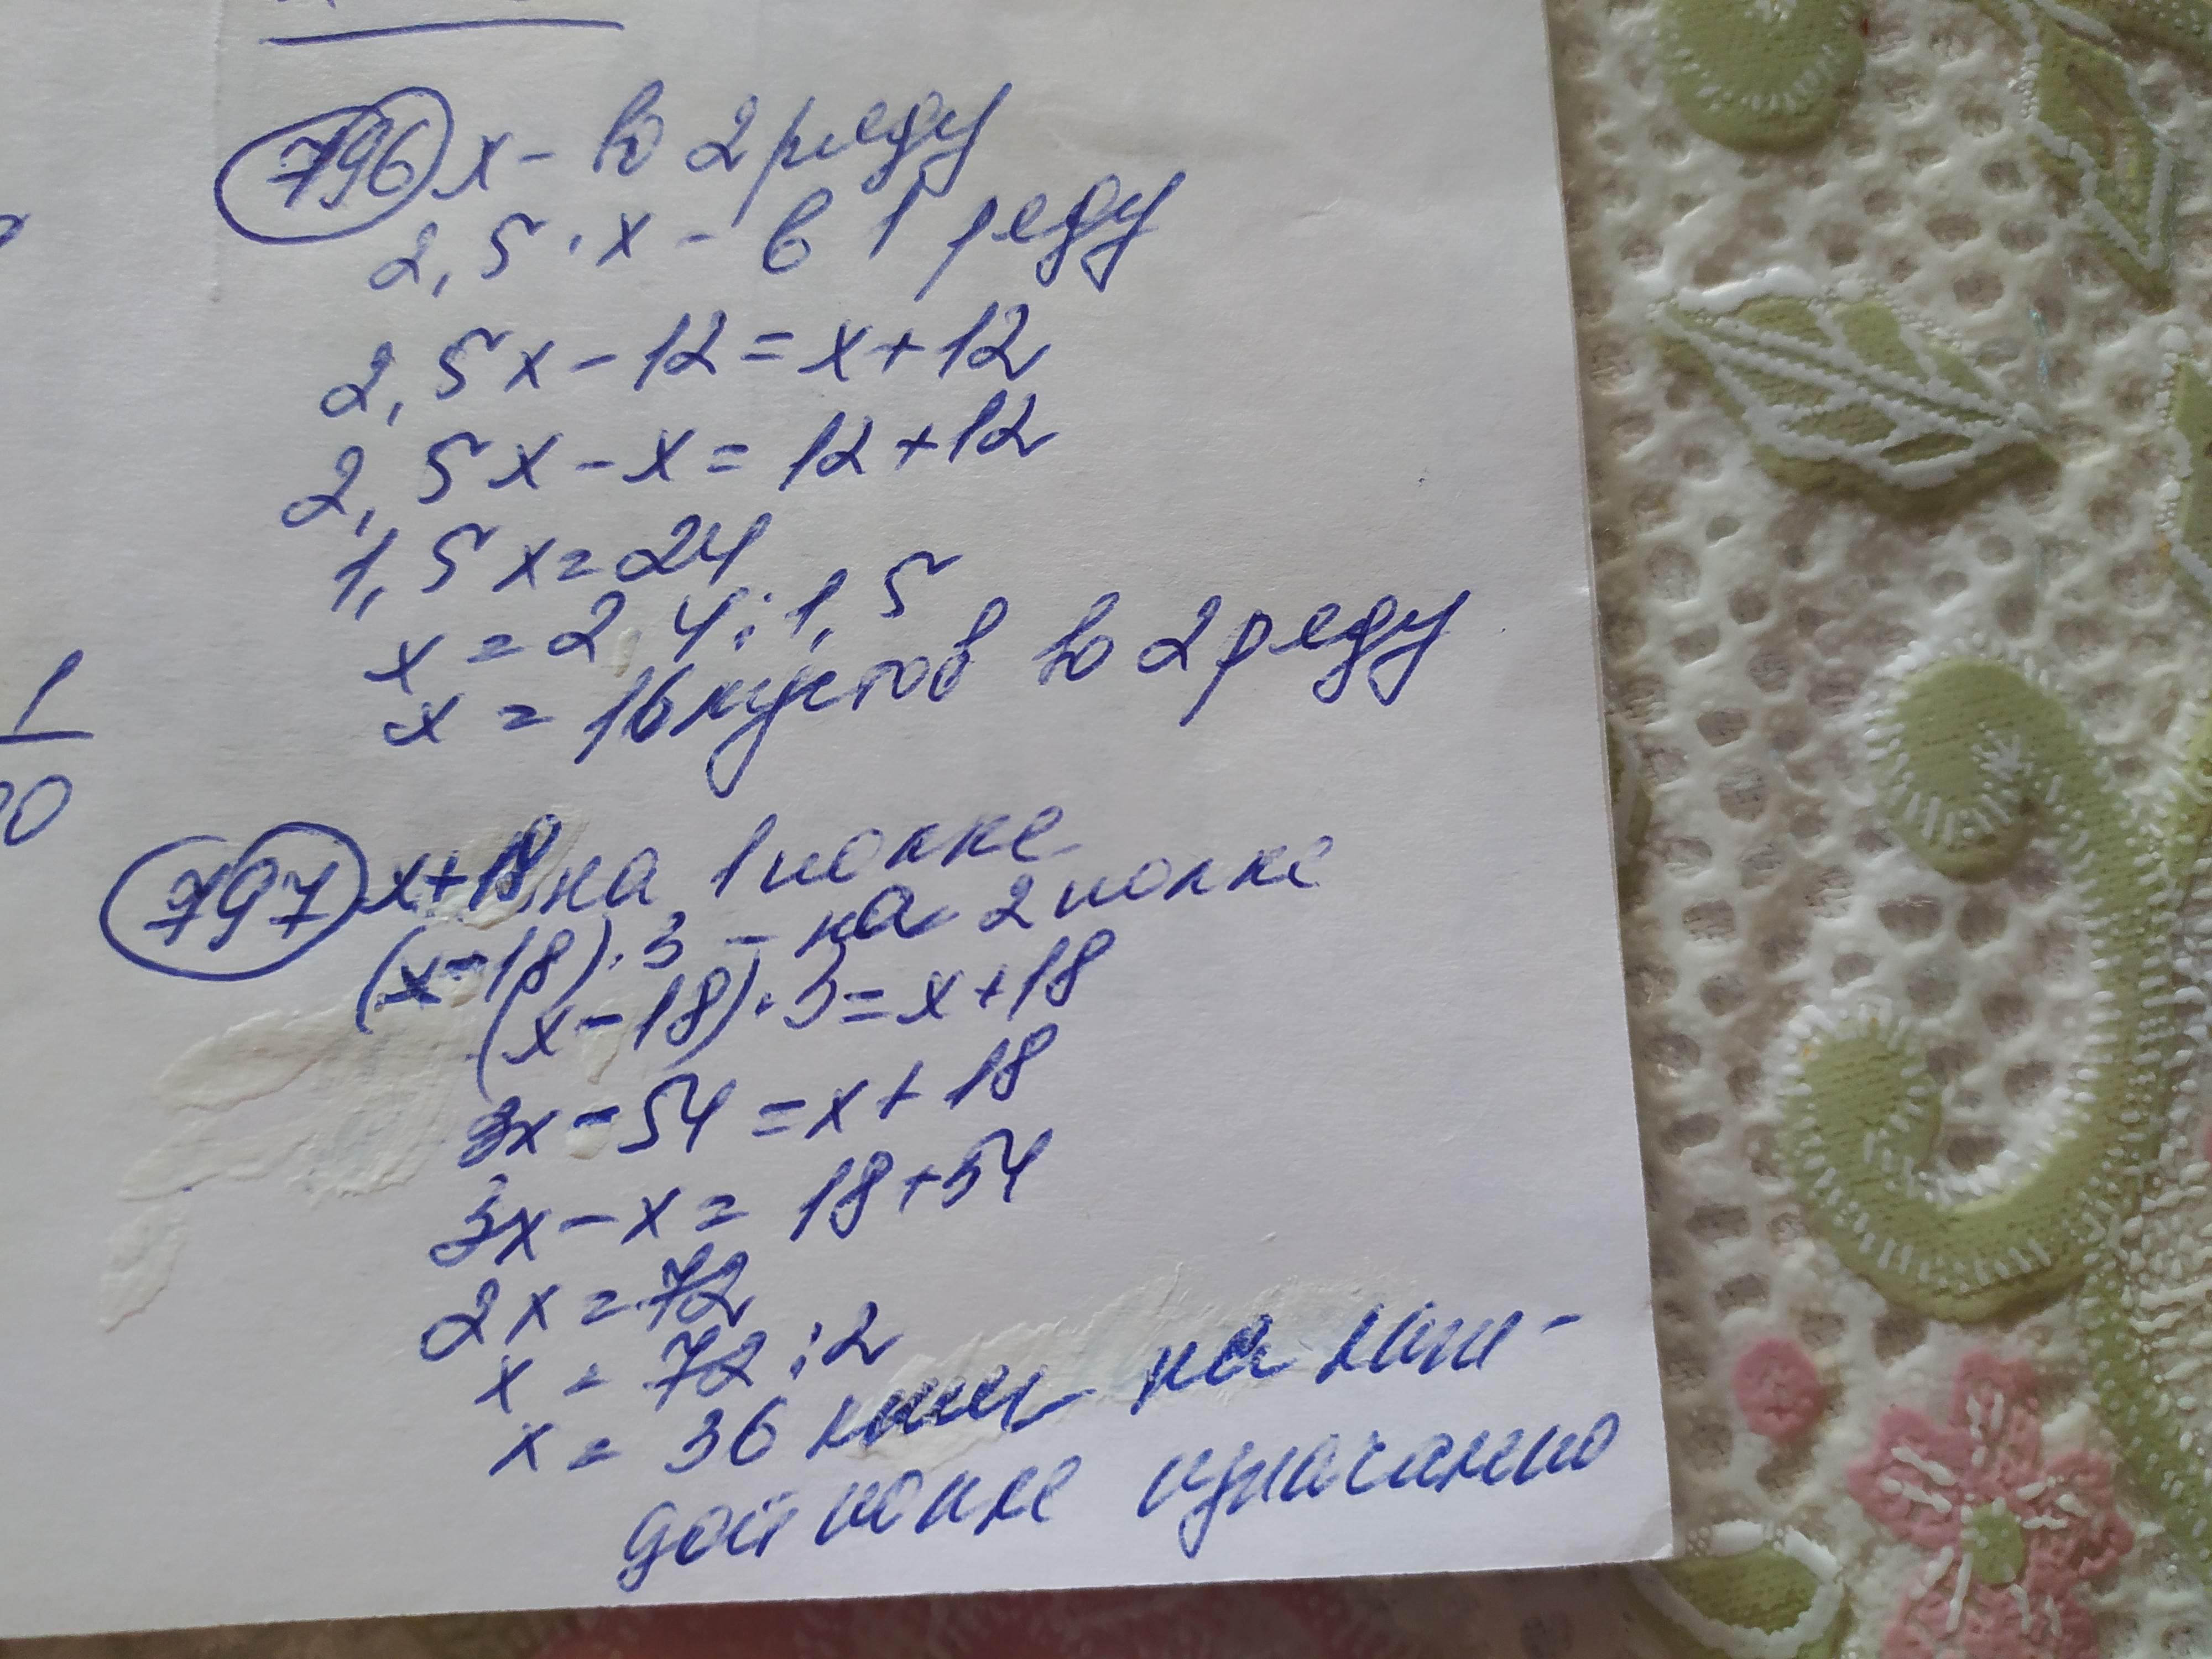 796 x - во 2 реду
2,5 · x - в 1 реду
2,5x - 12 = x + 12
2,5x - x = 12 + 12
1,5x = 24
x = 2,4 : 1,5
x = 16 кустов во 2 реду
1
797 x + 18 на 1 полке
(x - 18) · 3 - на 2 полке
(x - 18) · 3 = x + 18
3x - 54 = x + 18
3x - x = 18 + 54
2x = 72
x = 72 : 2
x = 36 книг на каж-
дой полке изначально